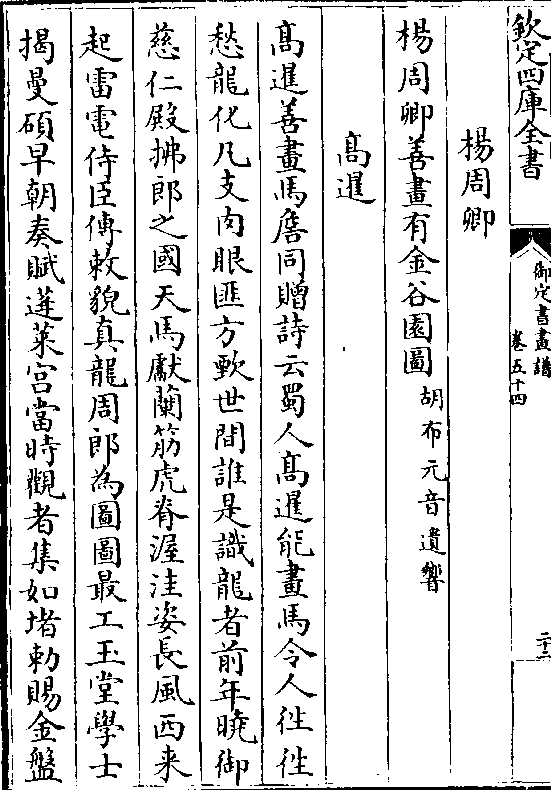 欽定四庫全書
御定書畫譜
卷五十四
二十二
楊周卿
楊周卿善畫有金谷園圖胡布元音遺響
高暹
高暹善畫馬詹同贈詩云蜀人高暹能畫馬令人徃徃
愁龍化凡支肉眼匪方歅世間誰是識龍者前年曉御
慈仁殿拂郎之國天馬獻蘭筋虎脊渥洼姿長風西来
起雷電侍臣傳敕貌真龍周郎為圖圖最工玉堂學士
揭曼碩早朝奏賦蓬萊宫當時觀者集如堵勅賜金盤